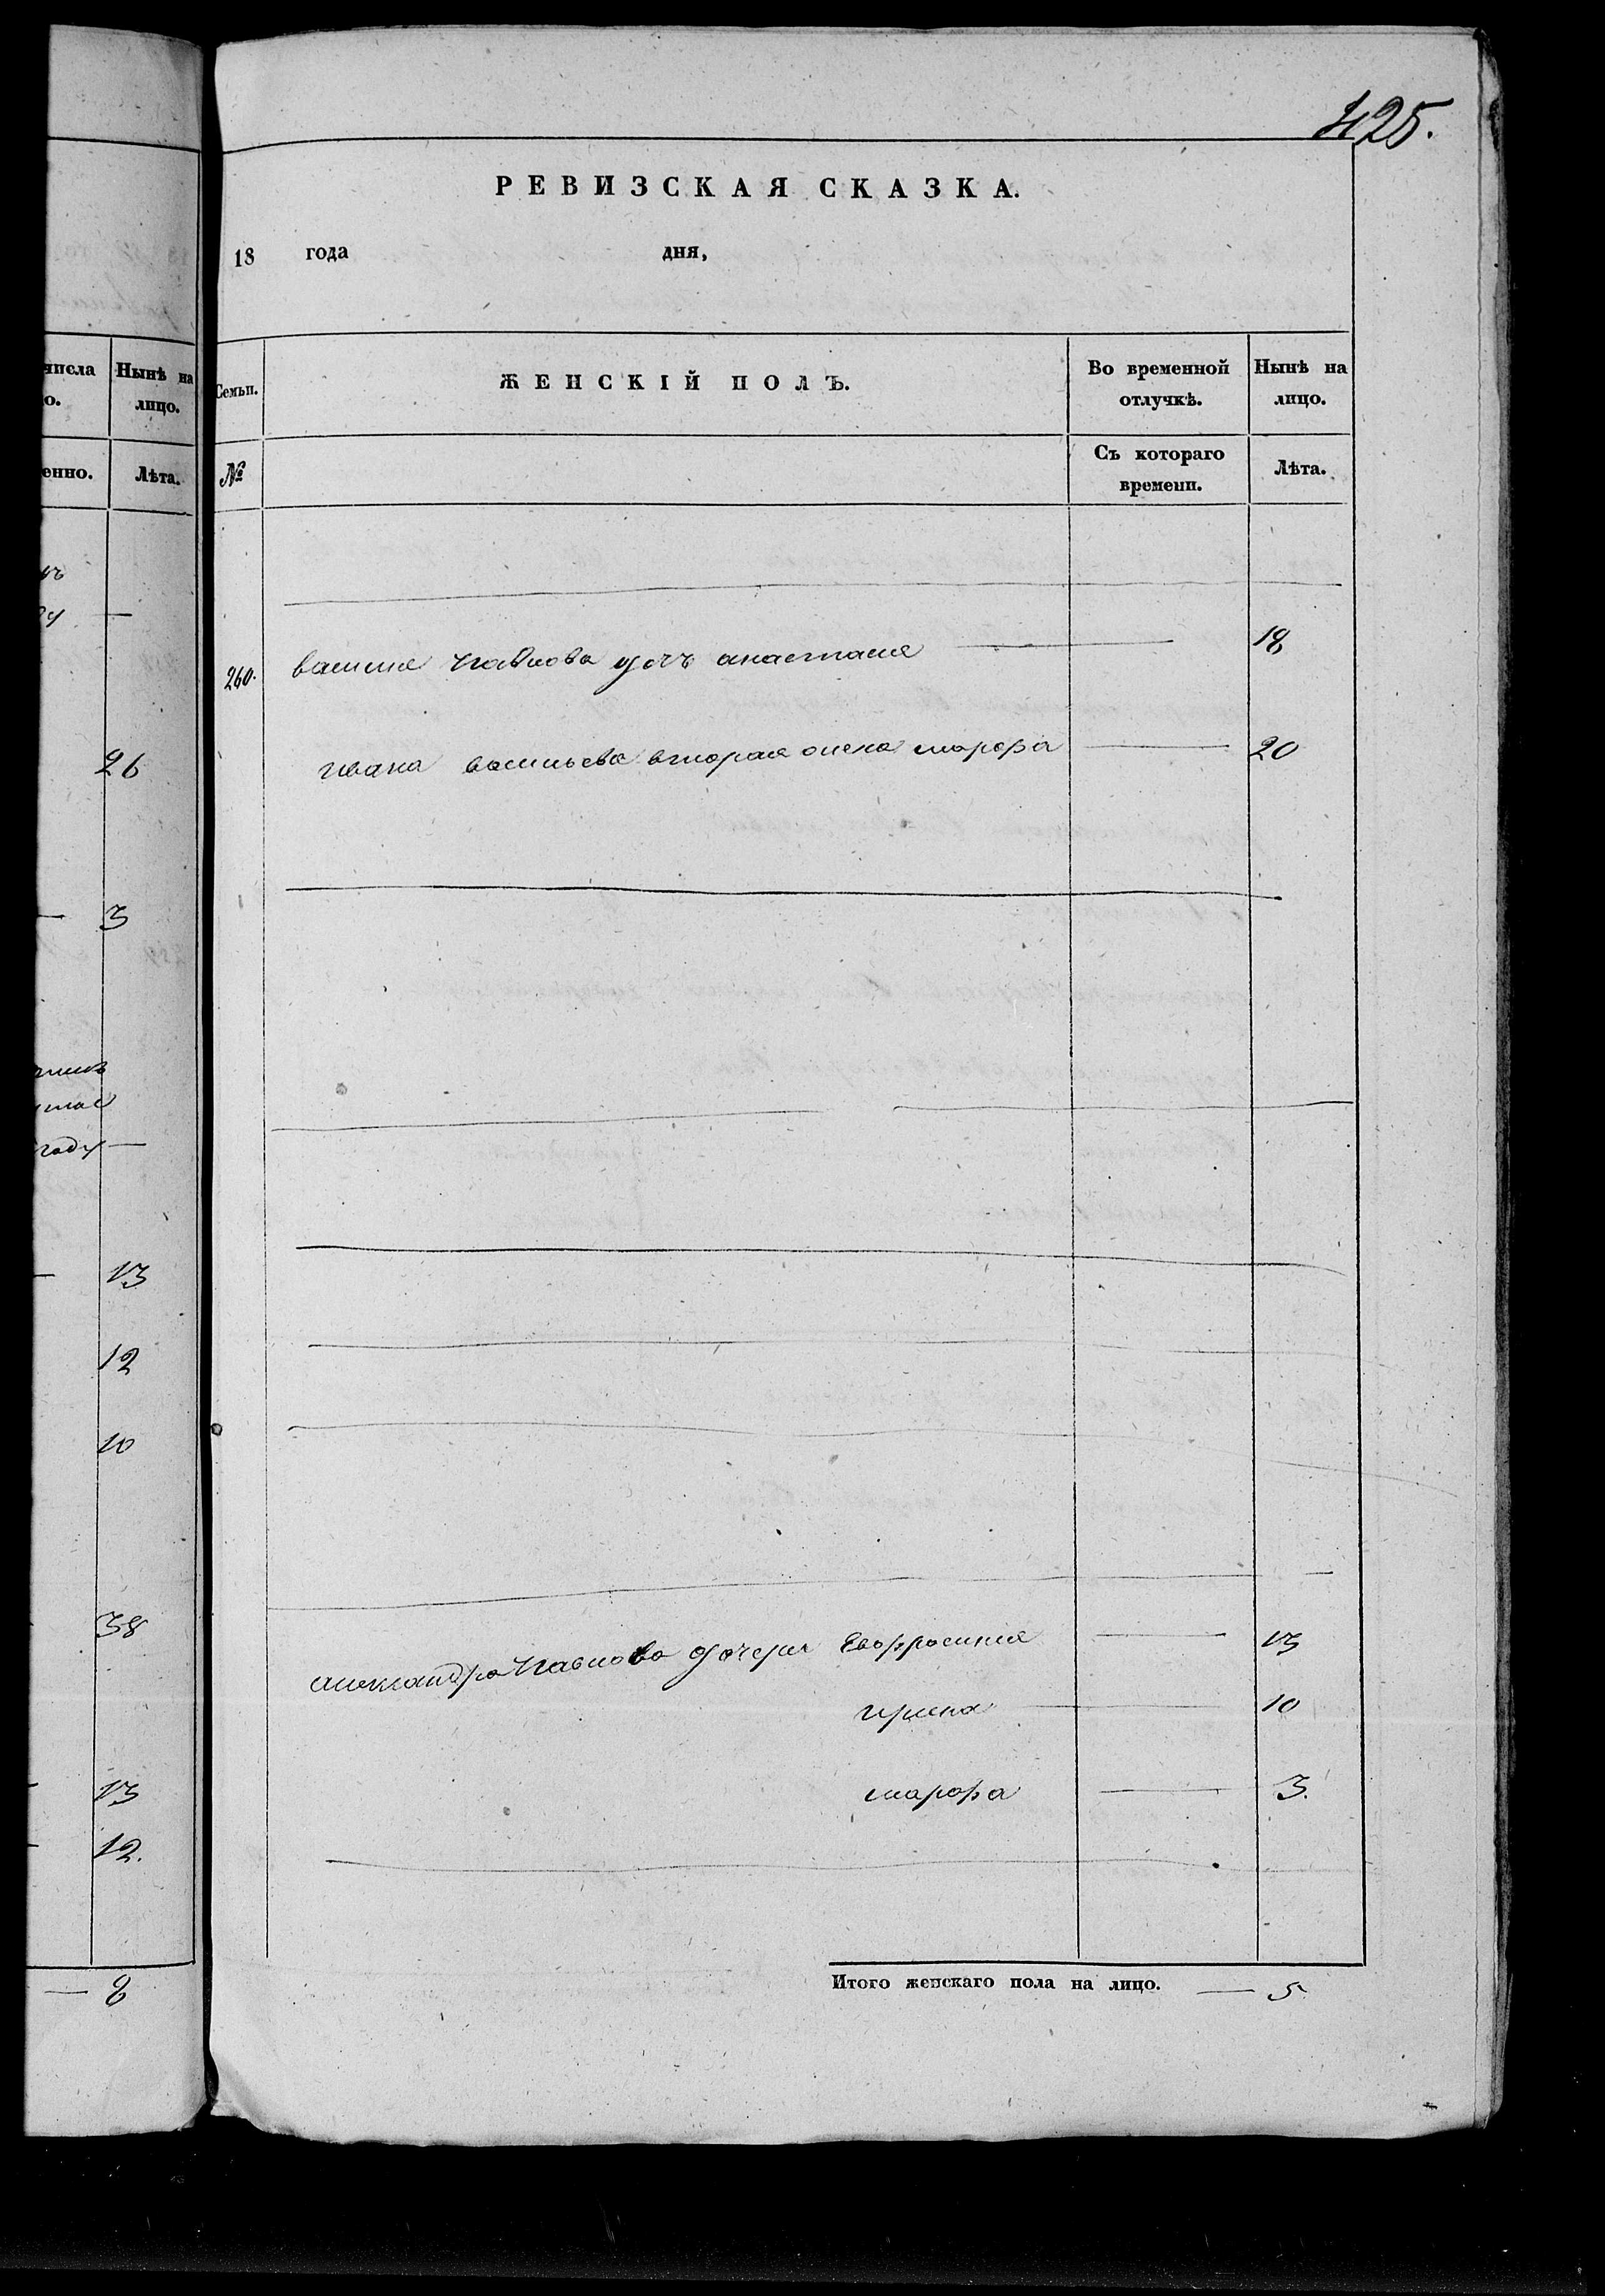 425.
РЕВИЗСКАЯ СКАЗКА.
18 года дня,
числа Нынѣ на
о. лицо.
енно. Лѣта.
26
3
году —
13
12
10
38
13
12.
— 8
Семьи. ЖЕНСКІЙ ПОЛЪ. Во временной отлучкѣ. Нынѣ на лицо.
№ Съ котораго времени. Лѣта.
260. василия павлова дочь анастасия 18
ивана васильева вторая жена марфа 20
александра павлова дочери Евфросиния 13
ирина 10
марфа 3.
Итого женскаго пола на лицо. — 5